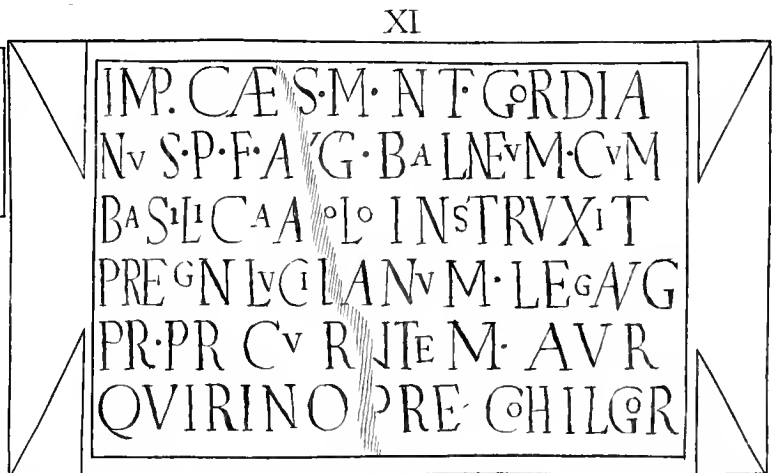 XI
IMP. CÆS·M·ANT·GORDIA
NVS·P·F·AVG·BALNEVM·CVM
BASILICA A SOLO INSTRVXIT
PR EGN LVCILIANVM·LEG AVG
PR·PR CVRANTE M·AVR
QVIRINO PRE COH I L GOR